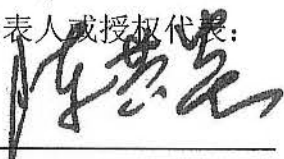 表人或授权代表：
陈